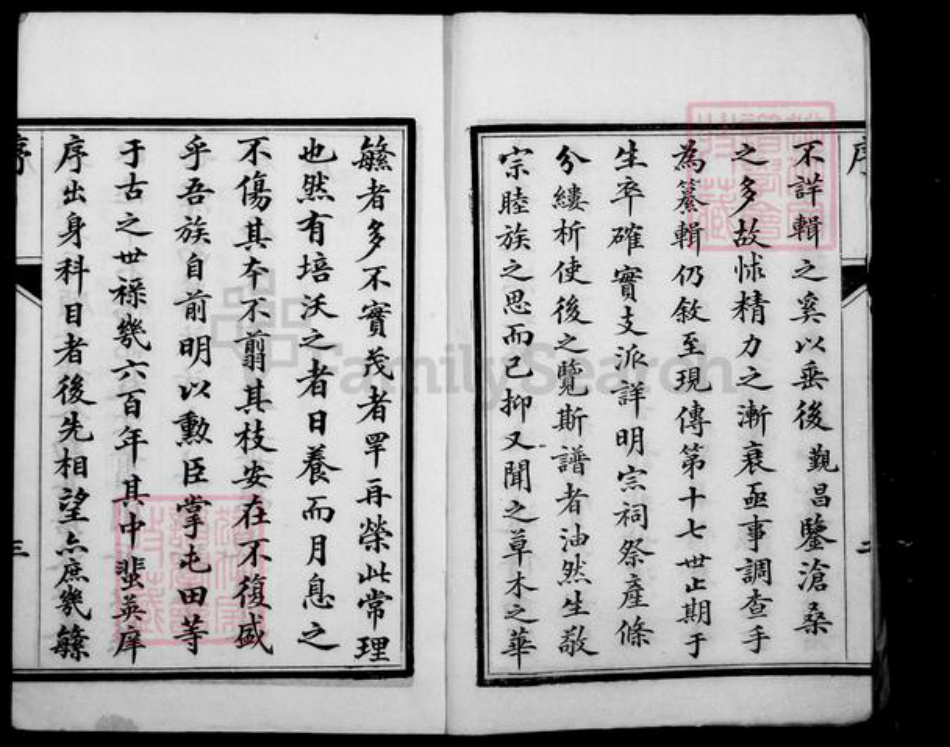 序
不詳輯之奚以垂後覲昌鑒滄桑
之多故怵精力之漸衰亟事調查手
為纂輯仍敘至現傳第十七世止期于
生卒確實支派詳明宗祠祭產條
分縷析使後之覽斯譜者油然生敬
宗睦族之思而已抑又聞之草木之華
二
繁者多不實茂者罕再榮此常理
也然有培沃之者日養而月息之
不傷其本不翦其枝安在不復盛
乎吾族自前明以勳臣掌屯田等
于古之世祿幾六百年其中蜚英庠
序出身科目者後先相望亦庶幾繁
序
三
FamilySearch